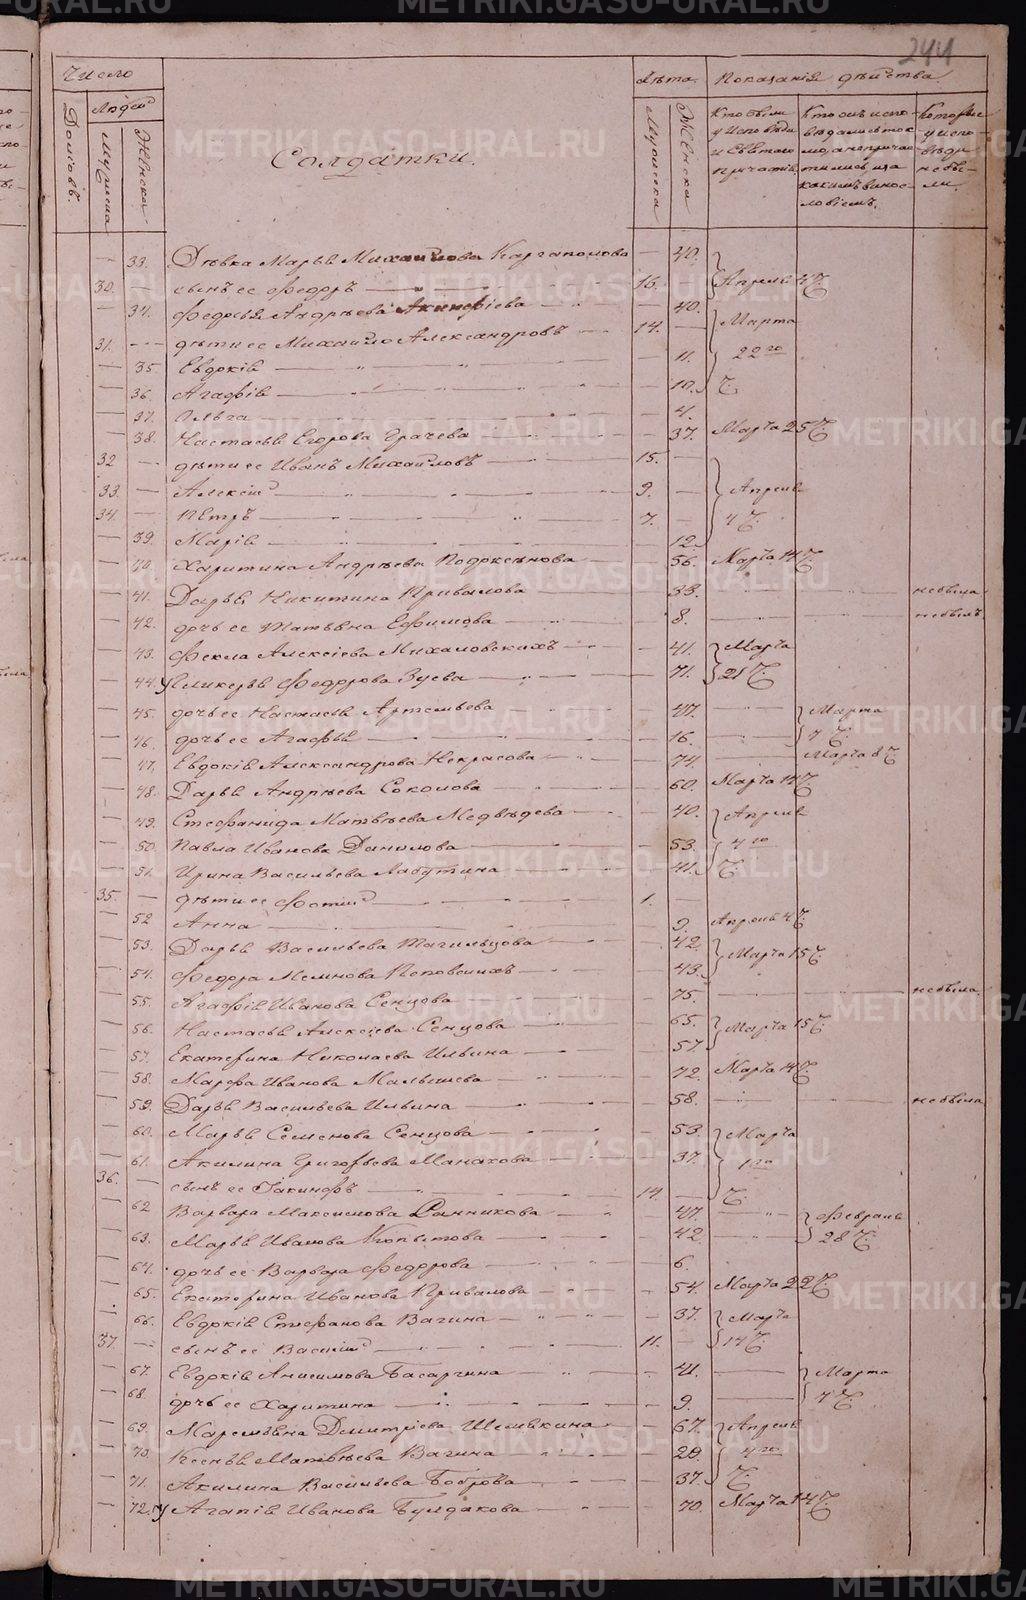 METRIKI.GASO-URAL.RU
244
Число
Лѣта.
Показанія дѣйства
Домовъ.
Людей
Мужеска
Женска
Солдатки.
Мужеска
Женска
Кто были у исповѣди и Св. таинъ причастія.
не были.
33. Дѣвка Марья Михайлова Каргаполова — 40.
30. — сынъ ее Федоръ — 16. Апрѣля 4 Ч.
34. Федосья Андрѣева Акинфіева — 40. Марта
31. — дѣти ее Михайло Александровъ — 14. —
— 35. Евдокія — 11. 22го
— 36. Агафія — 10. Ч.
— 37. Ольга — 4.
— 38. Настасья Егорова Грачева — 37. Марта 25 Ч.
32 — дѣти ее Иванъ Михайловъ — 15. —
33. — Алексій — 9. — Апрѣля
34. — Петръ — 7. — 4 Ч.
— 39. Марія — 12.
— 40. Харитина Андрѣева Подоксенова — 56. Марта 14 Ч.
— 41. Дарья Никитина Привалова — 33. не была
— 42. дочь ее Татьяна Ефимова — 8. не былъ
— 43. Фекла Алексіева Михаловскихъ — 41. Марта
— 44. Гликерья Федорова Зуева — 71. 21 Ч.
— 45. дочь ее Настасья Артемьева — 47. Марта
— 46. дочь ее Агафья — 16. 7 Ч.
— 47. Евдокія Александрова Некрасова — 74. Марта 8 Ч
— 48. Дарья Андрѣева Соколова — 60. Марта 14 Ч
— 49. Стефанида Матвѣева Медвѣдева — 40. Апрѣля
— 50. Павла Иванова Данилова — 53. 4го
— 51. Ирина Васильева Лабутина — 41. Ч.
35. — дѣти ее Фотій — 1. —
— 52 Анна — 9. Апрѣля 4 Ч.
— 53. Дарья Васильева Тагильцова — 42. Марта 15 Ч.
— 54. Федора Поповскихъ — 43.
— 55. Агафія Иванова Сенцова — 75. не была
— 56. Настасья Алексіева Сенцова — 65. Марта 15 Ч.
— 57. Екатерина Николаева Ильина — 57.
— 58. Марфа Иванова Малышева — 72. Марта 14 Ч.
— 59. Дарья Васильева Ильина — 58. не была
— 60. Марья Семенова Сенцова — 53. Марта
— 61. Акилина Григорьева Манакова — 37. 1го
36. — сынъ ее Іакинфъ — 14. — Ч.
— 62 Варвара Максимова Санникова — 47. Февраля
— 63. Марья Иванова Копытова — 42. 28 Ч.
— 64. дочь ее Варвара Федорова — 6.
— 65. Екатерина Иванова Привалова — 54. Марта 22 Ч
— 66. Евдокія Стефанова Вагина — 37. Марта
37. — сынъ ее Василій — 11. — 14 Ч.
— 67. Евдокія Анисимова Басаргина — 41. Марта
— 68. дочь ее Харитина — 9. 7 Ч.
— 69. Маремьяна Дмитріева Шемякина — 67. Апрѣля
— 70. Ксенья Матвѣева Вагина — 29. 4го
— 71. Акилина Васильева Боброва — 37. Ч.
— 72. Агапія Иванова Булдакова — 70. Марта 14 Ч.